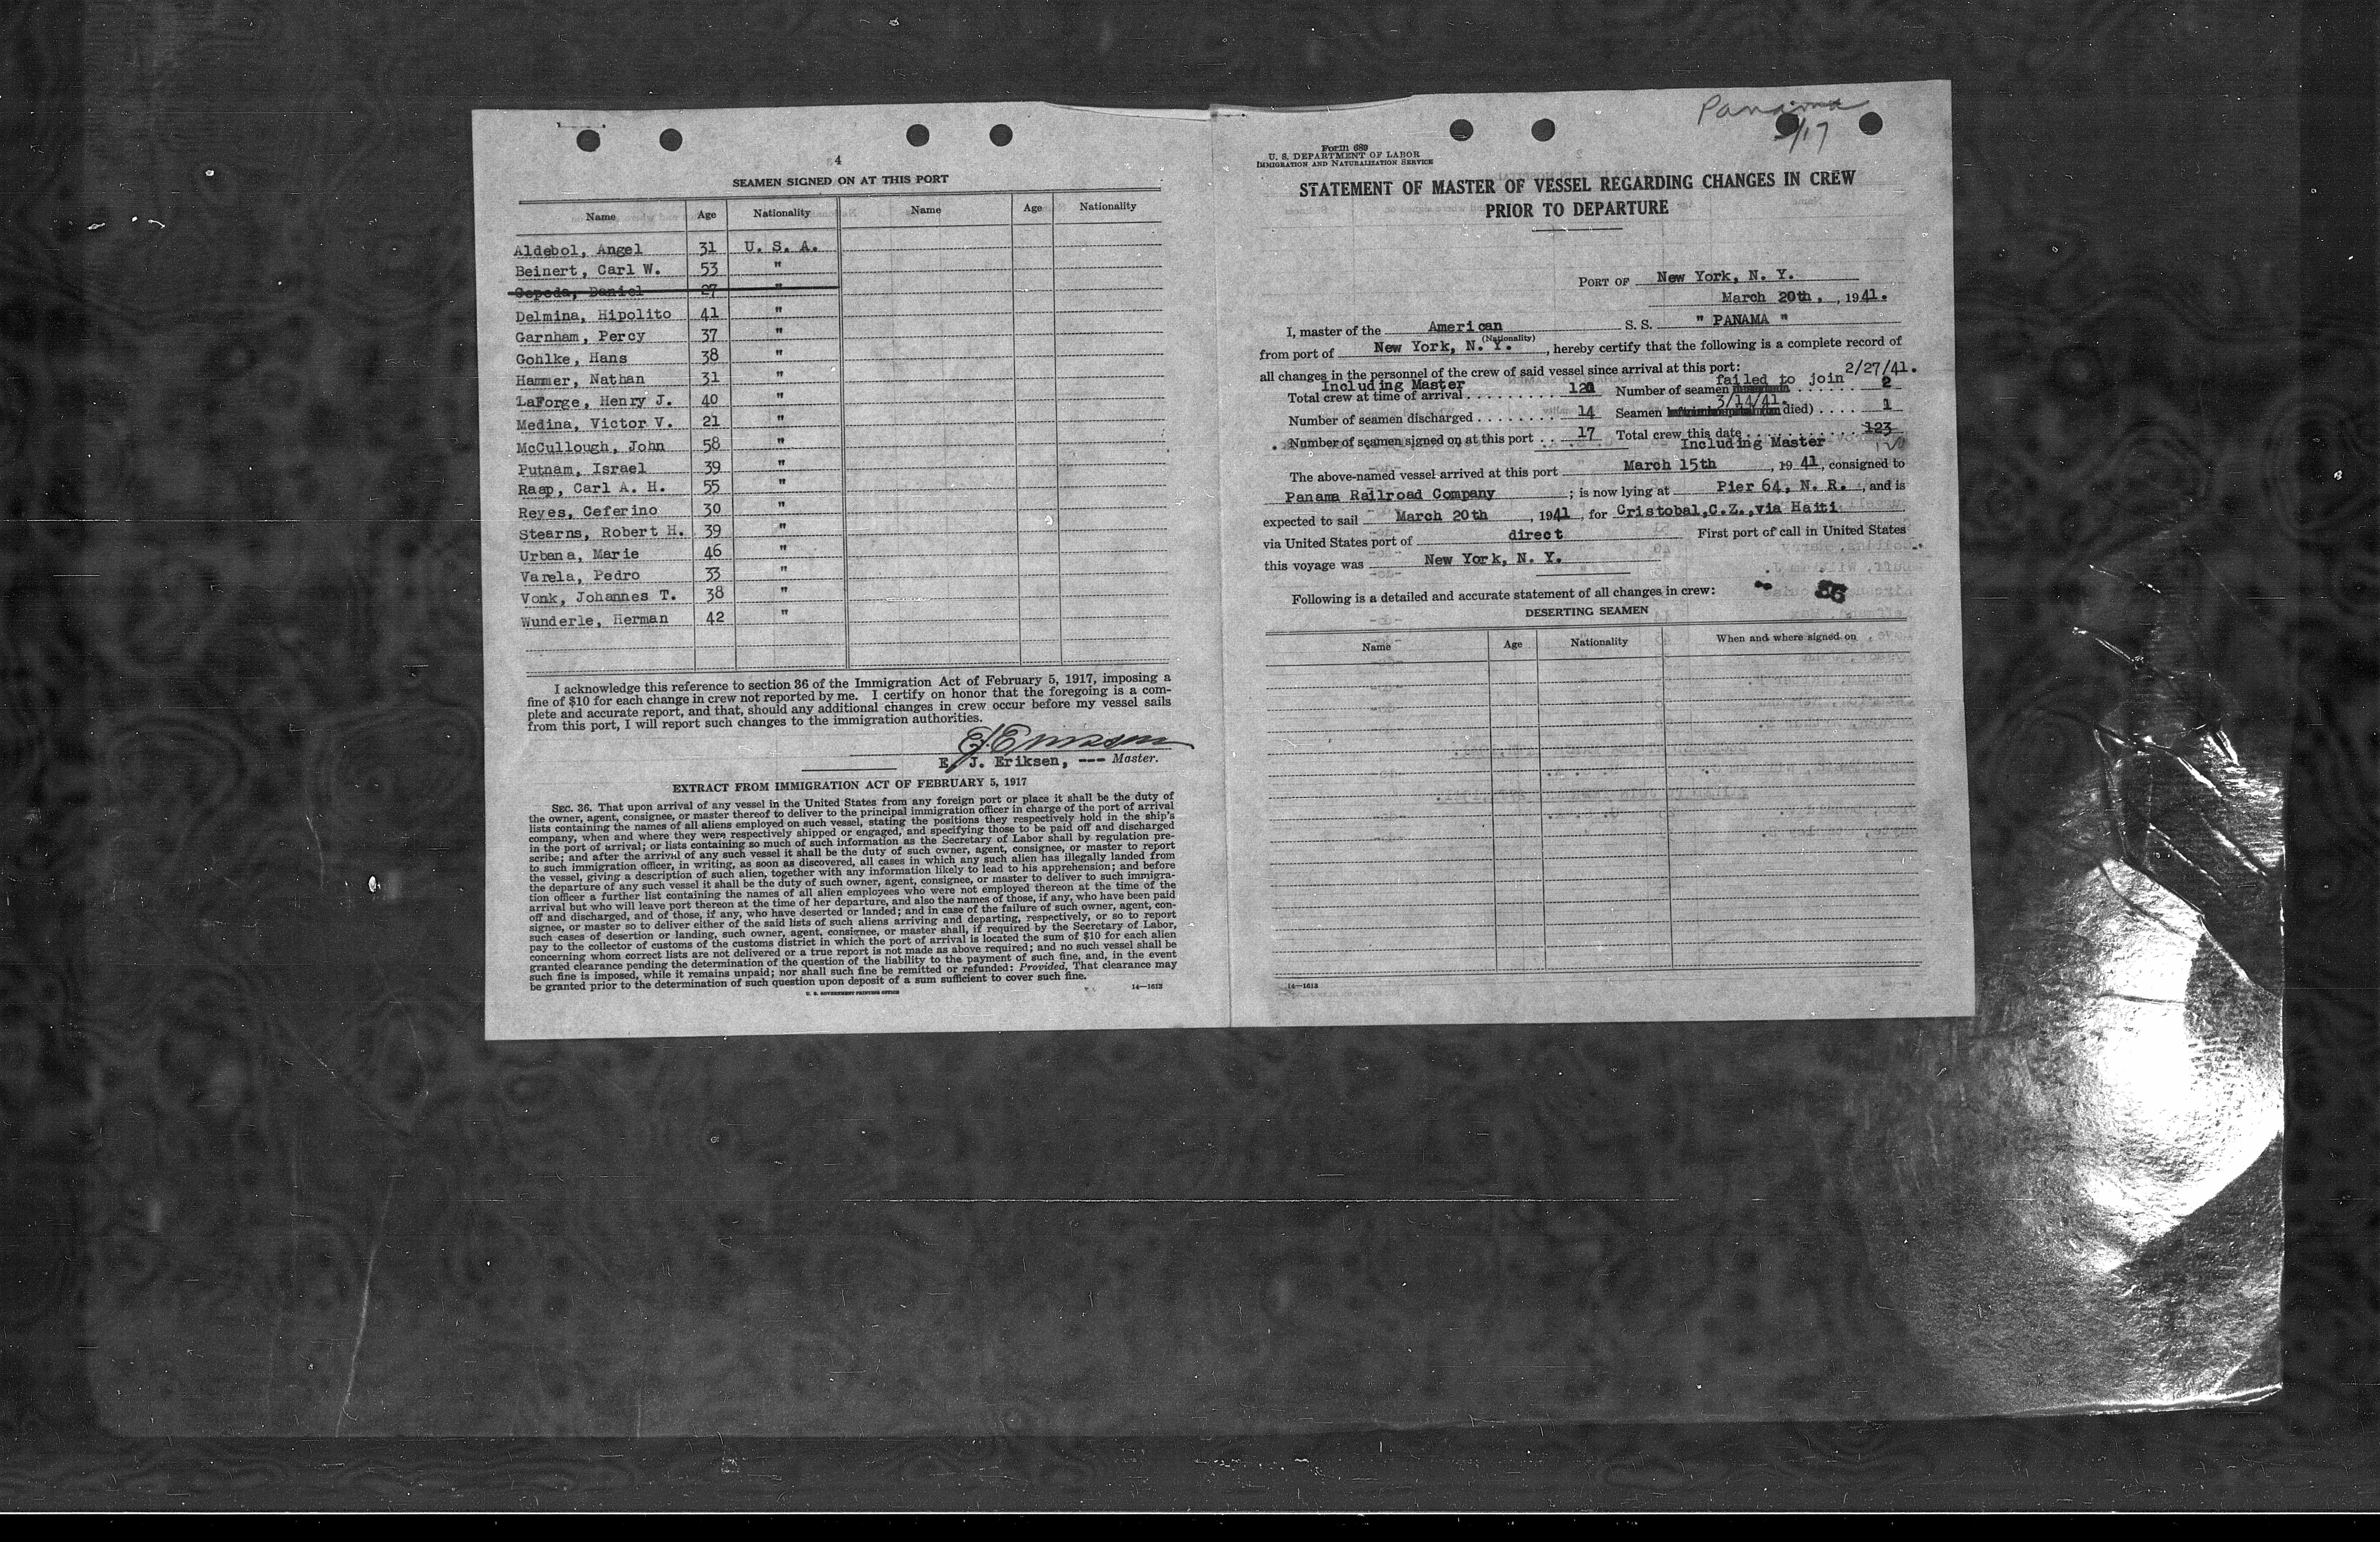 4
SEAMEN SIGNED ON AT THIS PORT
Name Age Nationality Name Age Nationality
Aldebol, Angel 31 U. S. A.
Beinert, Carl W. 53 "
Cepeda, Daniel 27 "
Delmina, Hipolito 41 "
Garnham, Percy 37 "
Gohlke, Hans 38 "
Hammer, Nathan 31 "
LaForge, Henry J. 40 "
Medina, Victor V. 21 "
McCullough, John 58 "
Putnam, Israel 39 "
Raap, Carl A. H. 55 "
Reyes, Ceferino 30 "
Stearns, Robert H. 39 "
Urbana, Marie 46 "
Varela, Pedro 33 "
Vonk, Johannes T. 38 "
Wunderle, Herman 42 "
I acknowledge this reference to section 36 of the Immigration Act of February 5, 1917, imposing a
fine of $10 for each change in crew not reported by me. I certify on honor that the foregoing is a com-
plete and accurate report, and that, should any additional changes in crew occur before my vessel sails
from this port, I will report such changes to the immigration authorities.
E J Eriksen
E. J. Eriksen, --- Master.
EXTRACT FROM IMMIGRATION ACT OF FEBRUARY 5, 1917
SEC. 36. That upon arrival of any vessel in the United States from any foreign port or place it shall be the duty of
the owner, agent, consignee, or master thereof to deliver to the principal immigration officer in charge of the port of arrival
lists containing the names of all aliens employed on such vessel, stating the positions they respectively hold in the ship's
company, when and where they were respectively shipped or engaged, and specifying those to be paid off and discharged
in the port of arrival; or lists containing so much of such information as the Secretary of Labor shall by regulation pre-
scribe; and after the arrival of any such vessel it shall be the duty of such owner, agent, consignee, or master to report
to such immigration officer, in writing, as soon as discovered, all cases in which any such alien has illegally landed from
the vessel, giving a description of such alien, together with any information likely to lead to his apprehension; and before
the departure of any such vessel it shall be the duty of such owner, agent, consignee, or master to deliver to such immigra-
tion officer a further list containing the names of all alien employees who were not employed thereon at the time of the
arrival but who will leave port thereon at the time of her departure, and also the names of those, if any, who have been paid
off and discharged, and of those, if any, who have deserted or landed; and in case of the failure of such owner, agent, con-
signee, or master so to deliver either of the said lists of such aliens arriving and departing, respectively, or so to report
such cases of desertion or landing, such owner, agent, consignee, or master shall, if required by the Secretary of Labor,
pay to the collector of customs of the customs district in which the port of arrival is located the sum of $10 for each alien
concerning whom correct lists are not delivered or a true report is not made as above required; and no such vessel shall be
granted clearance pending the determination of the question of the liability to the payment of such fine, and, in the event
such fine is imposed, while it remains unpaid; nor shall such fine be remitted or refunded: Provided, That clearance may
be granted prior to the determination of such question upon deposit of a sum sufficient to cover such fine.
U. S. GOVERNMENT PRINTING OFFICE 14—1613
Panama
/17
Form 689
U. S. DEPARTMENT OF LABOR
IMMIGRATION AND NATURALIZATION SERVICE
STATEMENT OF MASTER OF VESSEL REGARDING CHANGES IN CREW
PRIOR TO DEPARTURE
PORT OF New York, N. Y.
March 20th, , 1941.
I, master of the American S. S. " PANAMA "
(Nationality)
from port of New York, N. Y. , hereby certify that the following is a complete record of
all changes in the personnel of the crew of said vessel since arrival at this port: 2/27/41.
Including Master failed to join
Total crew at time of arrival 120 Number of seamen 2
3/14/41.
Number of seamen discharged 14 Seamen died) 1
Number of seamen signed on at this port 17 Total crew this date 123
Including Master 120
The above-named vessel arrived at this port March 15th , 1941, consigned to
Panama Railroad Company ; is now lying at Pier 64, N. R. , and is
expected to sail March 20th , 1941, for Cristobal,C.Z.,via Haiti
via United States port of direct First port of call in United States
this voyage was New York, N. Y.
Following is a detailed and accurate statement of all changes in crew:
86
DESERTING SEAMEN
Name Age Nationality When and where signed on
14—1613